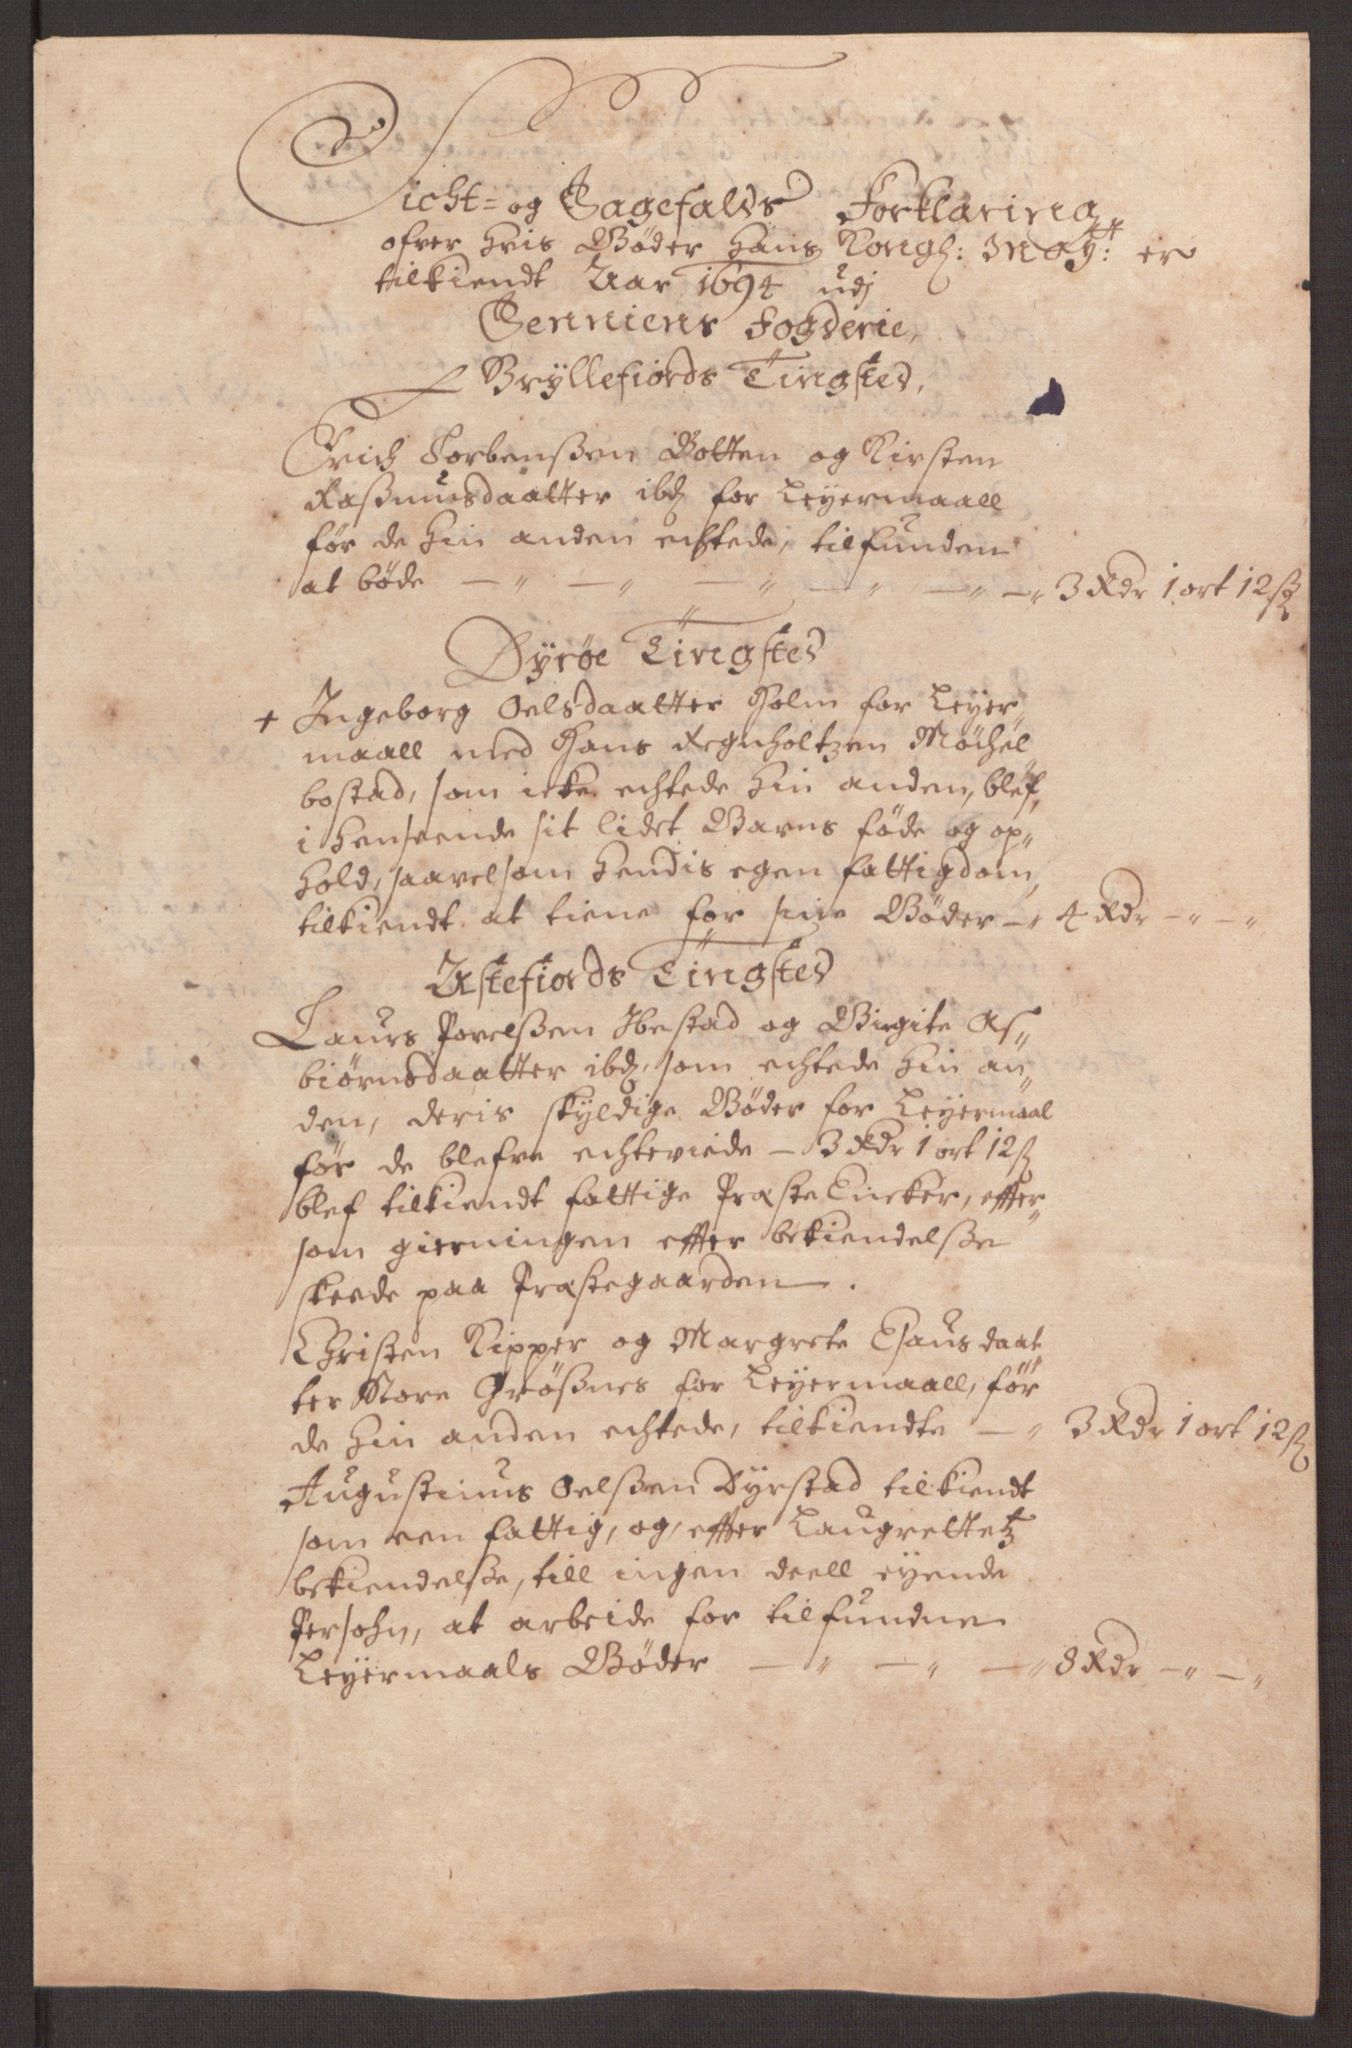 Sicht= og Sagefalds Forklaring
ofver hvis Bøder Hans Kongl: Mayᵗᵗ: er
tilkiendt Aar 1694 udj
Senniens Fogderie,
Bryllefiords Tingsted,
Erich Torbenßen Botten og Kirsten
Raßmusdaatter ibd for Leyermaall
før de hin anden echtede, tilfunden
at bøde — „ — „ — „ — „ — „ — „ 3 Rdr 1 ort 12 ß
Dyrøe Tingsted
+ Ingeborg Oelsdaatter Holm for Leyer„
maall med Hans Regnholtzen Møchel
bostad, som icke echtede hin anden, blef,
i henseende sit lidet Barns føde og op„
hold, saavelsom hendis egen fattigdom,
tilkiendt at tiene for sine Bøder — „ 4 Rdr — „ — „
Astefiords Tingsted
Laurs Povelßen Ibestad og Birgite As„
biørnsdaatter ibd, som echtede hin an„
den, deris skyldige Bøder for Leyermaal
før de blefve echteviede — 3 Rdr 1 ort 12 ß
blef tilkiendt fattige Præste Encker, effter„
som gierningen effter bekiendelße
skeede paa Præstegaarden — .
Christen Kipper og Margrete Esausdaat„
ter Store Grøßnes for Leyermaall, før
de hin anden echtede, tilkiendte — „ 3 Rdr 1 ort 12 ß
Augustinus Oelßen Dyrstad tilkiendt
som een fattig, og, effter Laugrettetz
bekiendelße, till ingen deell eyende
Persohn, at arbeide for tilfundne
Leyermaals Bøder — „ — „ — „ 8 Rdr — „ — „